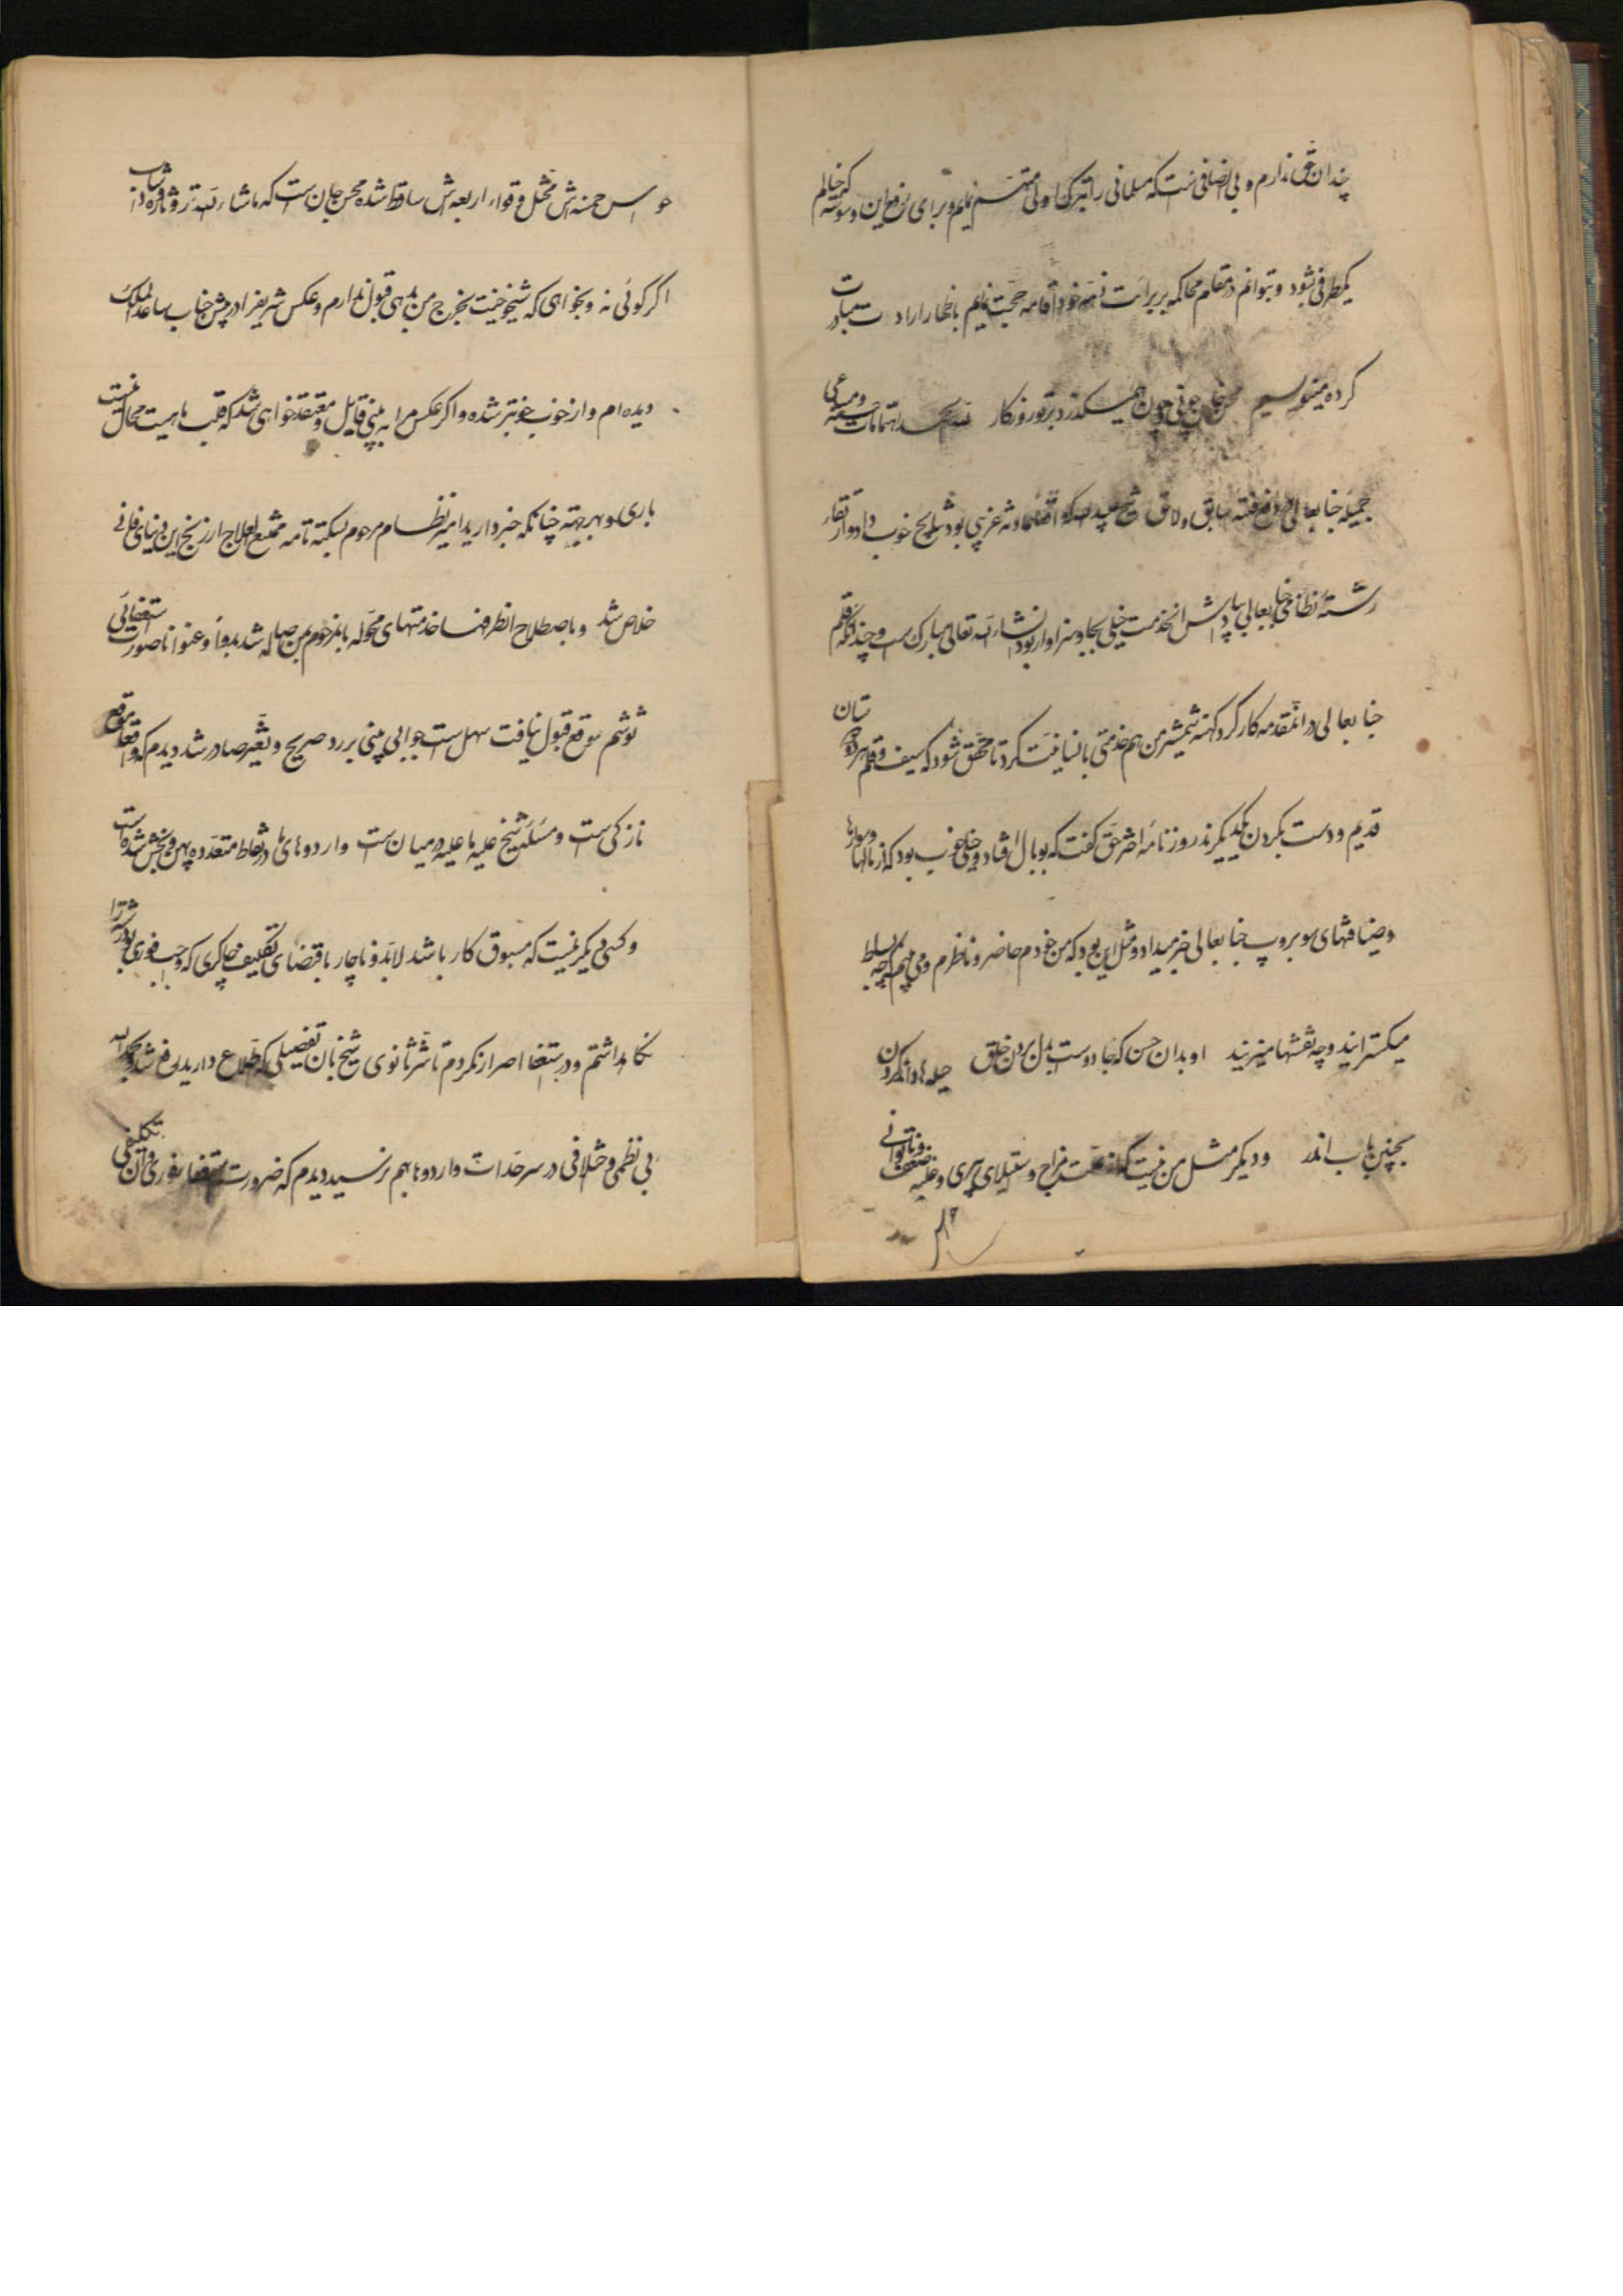 چندان حق ندارم و بی انصافی است که مسلمانی را بترک اولی متهم نمایم و برای رفع این وسوسه که خیالم
یکطرفی بشود و بتوانم در مقام محاکمه بر برائت ذمه خود اقامه حجت نمایم باظهار ارادت مبادرت
کرده مینویسیم چونی و چون همیگذرد بتو روزگار اهتمامات حسنه و مساعی
جمیله جنابعالی در دفع فتنه سابق و لاحق شیخ عبیدالله که اقتضا و غریبی بود نتایج خوب داد و از نقار
رشته نظامی جنابعالی پاداش این خدمت خیلی بجا و سزاوار بود انشاءالله تعالی مبارک است و چنانکه قلم
جنابعالی در آنمقدمه کار کرد کهنه شمشیر من هم خدمتی بالنیابت کرد تا محقق شود که سیف و قلم هر دو دوستان
قدیم و دست بگردن یکدیگرند روزنامه اختر حق گفت که بوبال افتاد و خیلی خوب بود که از مالها و سوارها
و ضیافتهای سوبروپ جنابعالی خبر میداد و مثل این بود که من خودم حاضر و ناظرم و می بینم که چه بساط
میگسترانید و چه نقشها میزنید او بدان حسن که جادوست بدل بردن خلق حیله ها داند کردن
بچنین باب اندر و دیگر مثل من نیست که از مزاج و استیلای پیری و غلبه ضعف و ناتوانی
حواس خمسه اش مختل و قواء اربعه اش ساقط شده محسن جان است که ماشاءالله تر و تازه از شباب
اگر گوئی نه و بخواهی که شیخوخیت بخرج من بدهی قبول ندارم و عکس شریف را در پیش جناب ساعدالملک
دیده ام و از خوب خوبتر شده و اگر عکس مرا ببینی قایل و معتقد خواهی شد که قلب ماهیت محال نیست
باری و بهر جهة چنانکه خبر دارید امیر نظام مرحوم بسکته تامه ممتنع العلاج از رنج این دنیای فانی
خلاص شد و باصطلاح انظر فنا خدمتهای محوله بآنمرحوم بمن حواله شد بدواً و عنوانا صورت استعفائی
نوشتم موقع قبول نیافت سهل است جوابی مبنی بر رد صریح و تغیر صادر شد دیدم که واقعا موقع
نازکی است و مسئله شیخ علیه ما علیه در میان است و اردوهای ما در نقاط متعدده پهن و پخش شده است
و کسی دیگر نیست که مسبوق کار باشد لابد و ناچار باقتضای تکلیف چاکری که واجب فوری بود سررشته را
نگاهداشتم و در استعفا اصرار نکردم تا شر ثانوی شیخ بآن تفصیلی که اطلاع دارید رفع شد و بحمدالله
بی نظمی و اختلافی در سرحدات و اردوها بهم نرسید دیدم که ضرورت استعفا فوری و آن تکلیفی